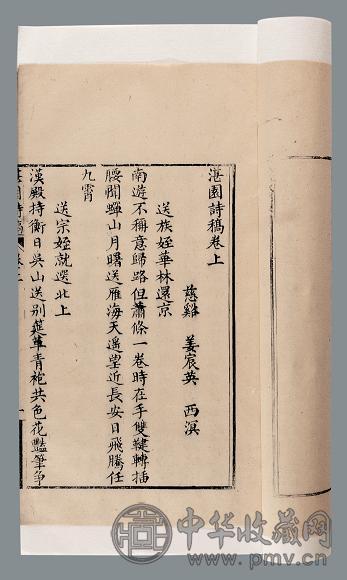 湛園詩稿卷上
慈谿 姜宸英 西溟
送族姪華林還京
南遊不稱意歸路但蕭條一卷時在手雙鞬轉插
腰聞蟬山月曙送雁海天遙望近長安日飛騰任
九霄
送宗姪就選北上
漢殿持衡日吳山送别筵草青袍共色花豔筆爭
中华收藏网
www.pmv.cn